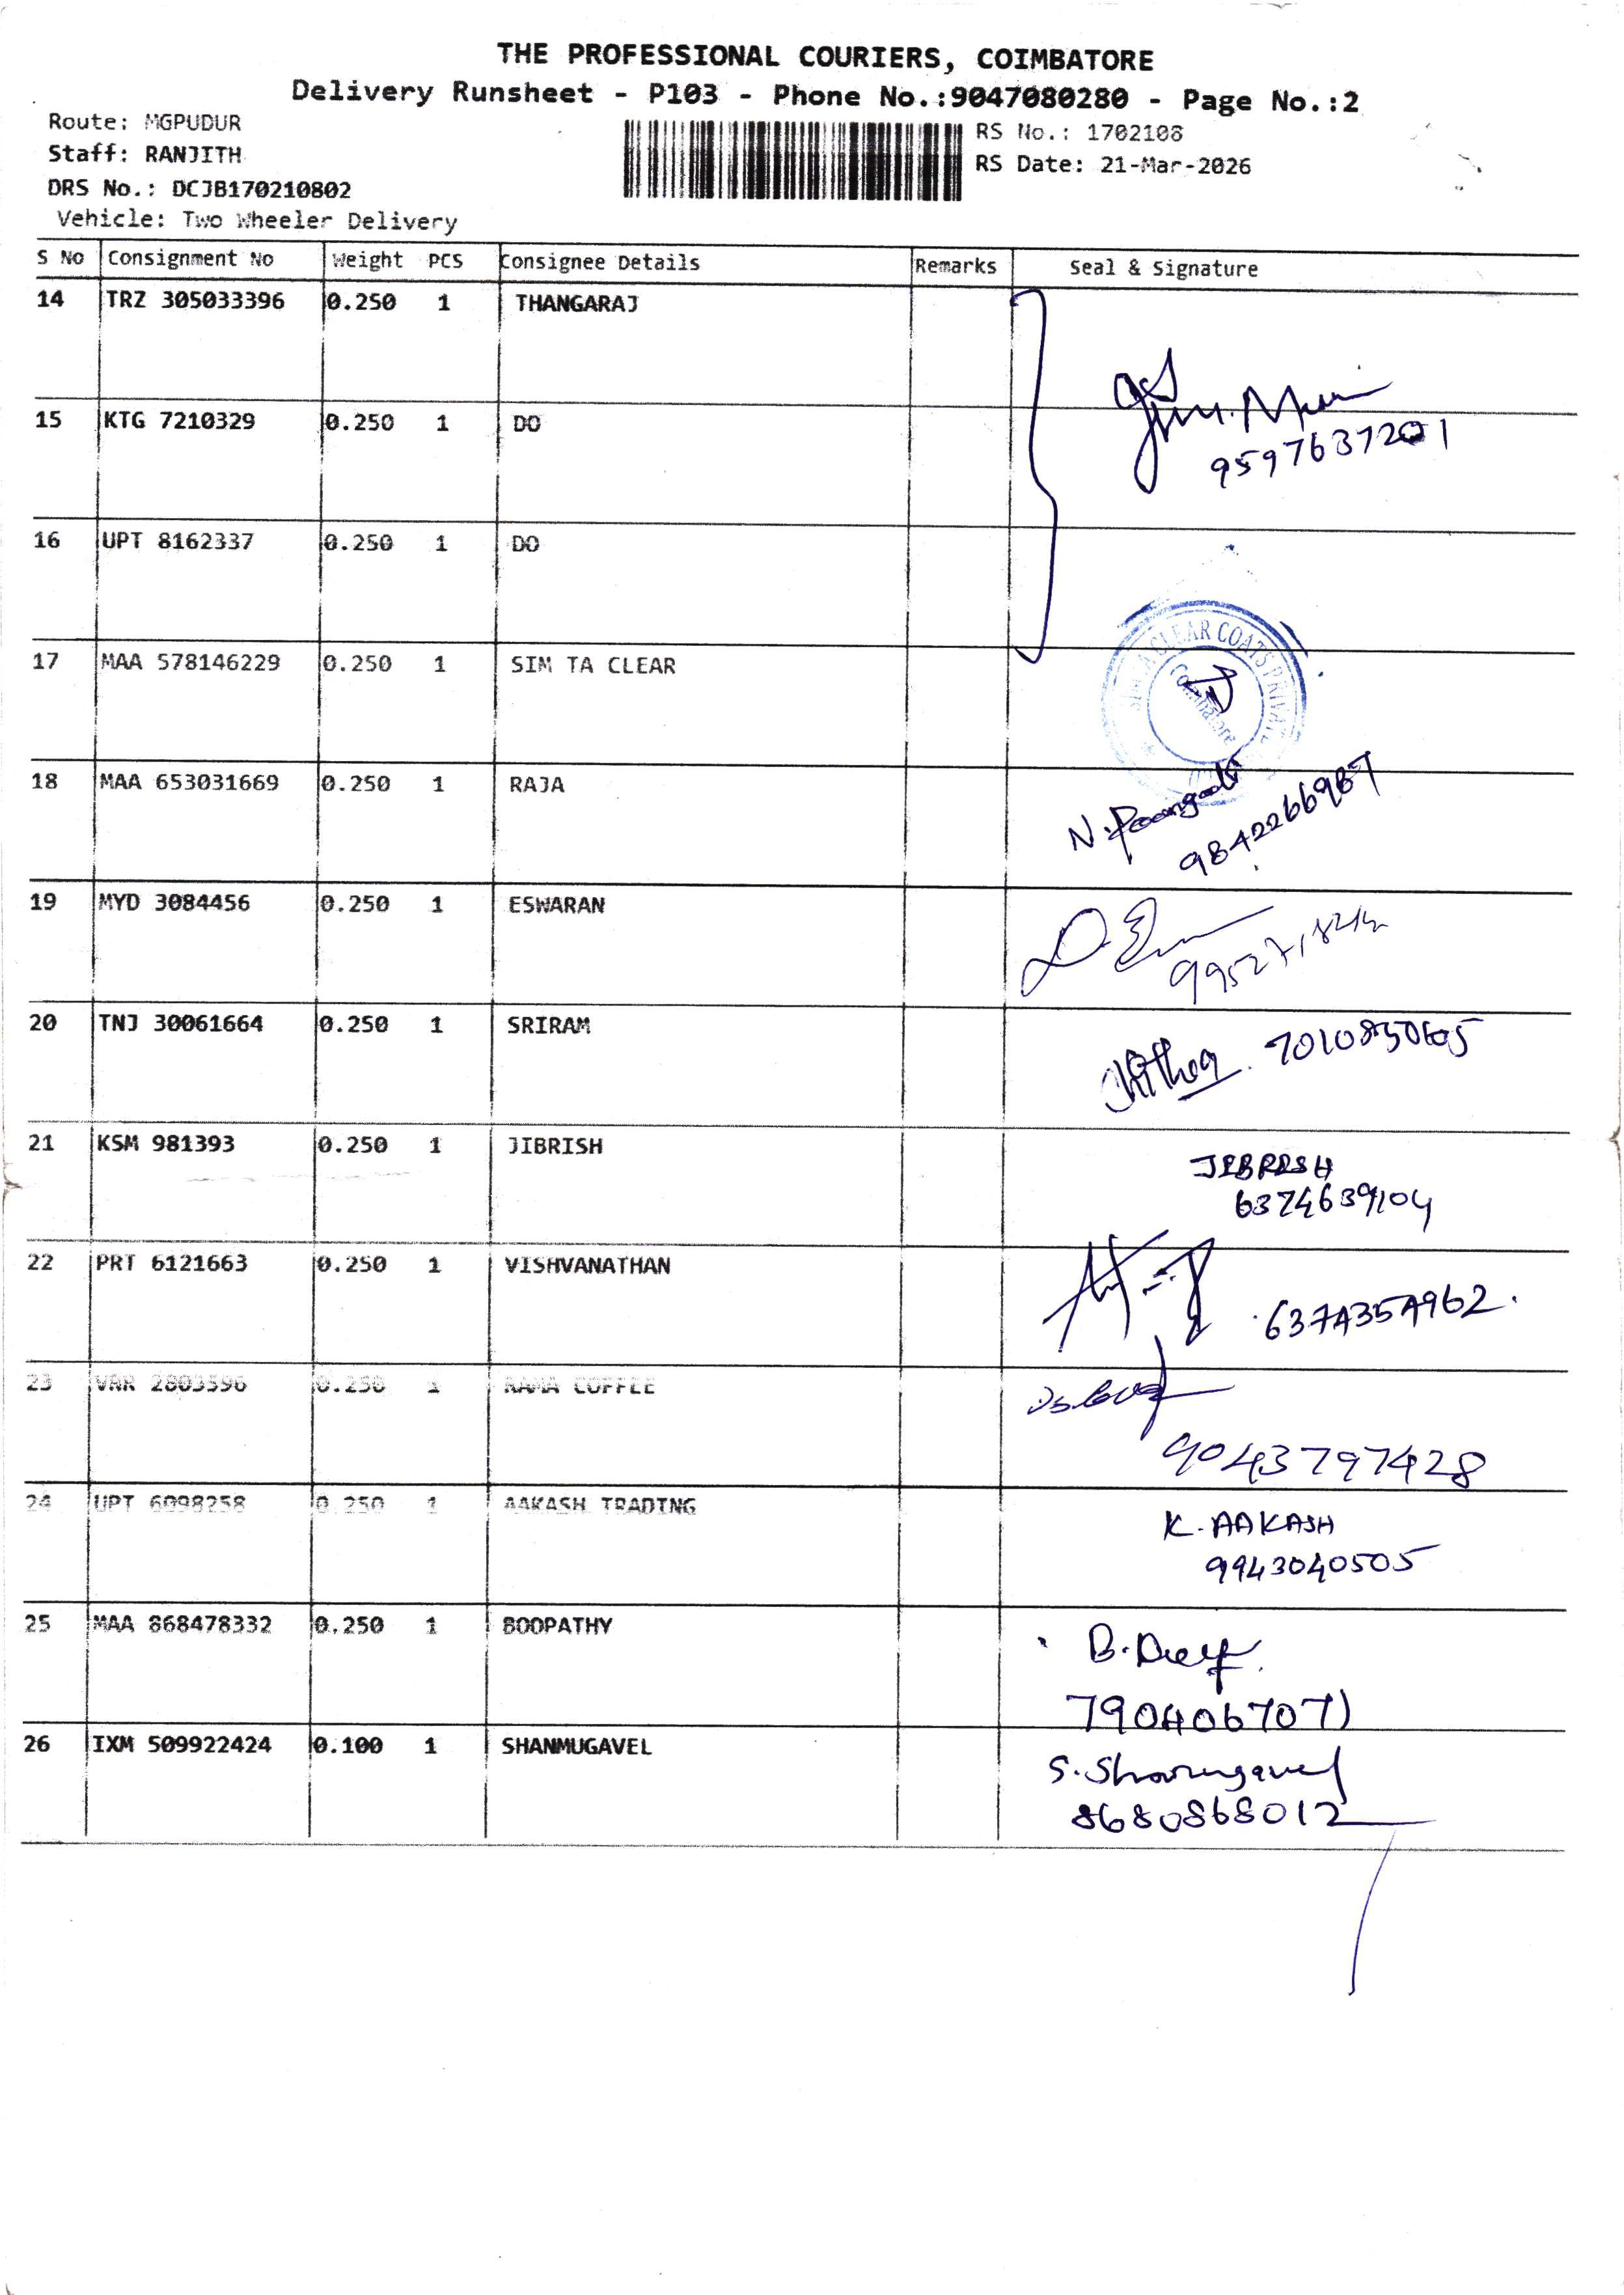 THE PROFESSIONAL COURIERS, COIMBATORE
Delivery Runsheet - P103 - Phone No.:9047080280 - Page No.:2
Route: MGPUDUR
RS No.: 1702108
Staff: RANJITH
RS Date: 21-Mar-2026
DRS No.: DCJB170210802
Vehicle: Two Wheeler Delivery
S No Consignment No Weight PCS Consignee Details Remarks Seal & Signature
14 TRZ 305033396 0.250 1 THANGARAJ
15 KTG 7210329 0.250 1 DO
9597637201
16 UPT 8162337 0.250 1 DO
17 MAA 578146229 0.250 1 SIM TA CLEAR
CLEAR COATS PRIVATE
Coimbatore
18 MAA 653031669 0.250 1 RAJA
9842266987
19 MYD 3084456 0.250 1 ESWARAN
20 TNJ 30061664 0.250 1 SRIRAM
21 KSM 981393 0.250 1 JIBRISH
JIBRISH
6374639104
22 PRT 6121663 0.250 1 VISHVANATHAN
6374357962.
23 VAR 2803596 0.250 1 RAMA COFFEE
9043797428
24 UPT 6098258 0.250 1 AAKASH TRADING
K. AAKASH
9943040505
25 MAA 868478332 0.250 1 BOOPATHY
7904067071
26 IXM 509922424 0.100 1 SHANMUGAVEL
S. Shanmugavel
8680868012